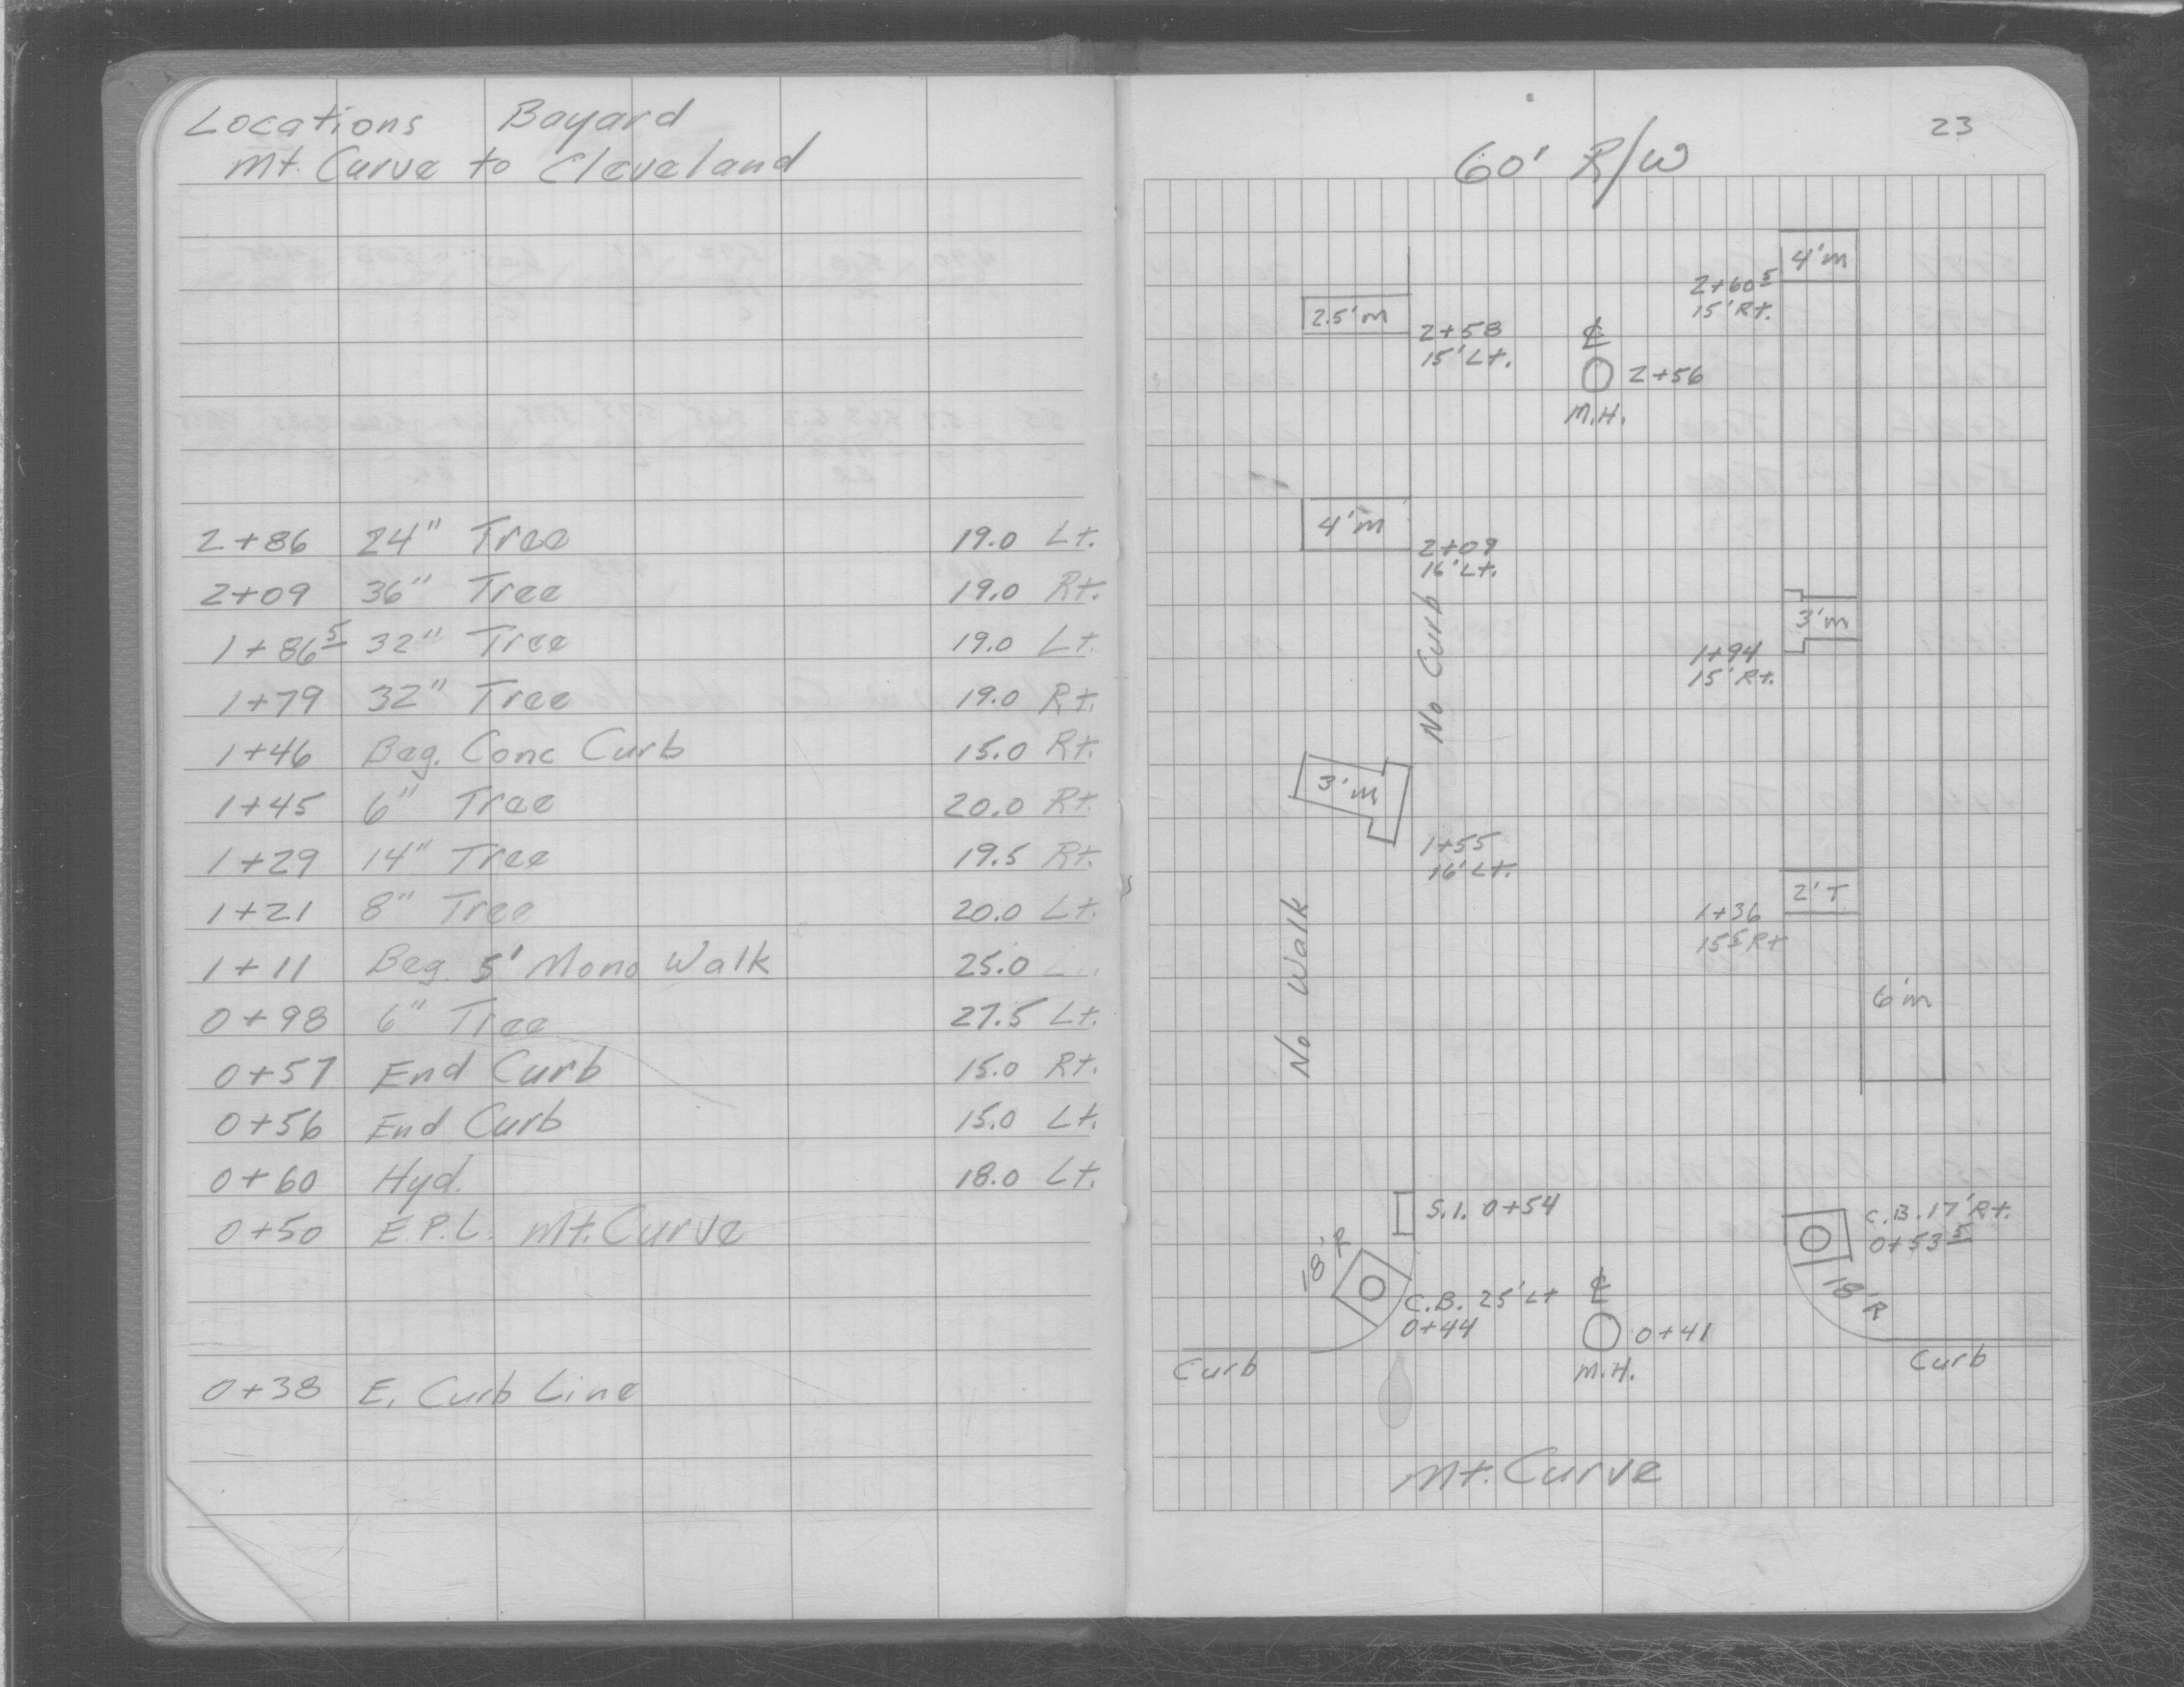 Locations Bayard
Mt. Curve to Cleveland
2+86 24" Tree 19.0 Lt.
2+09 36" Tree 19.0 Rt.
1+86 5 32" Tree 19.0 Lt.
1+79 32" Tree 19.0 Rt.
1+46 Beg. Conc Curb 15.0 Rt.
1+45 6" Tree 20.0 Rt.
1+29 14" Tree 19.5 Rt.
1+21 8" Tree 20.0 Lt.
1+11 Beg. 5' Mono Walk 25.0
0+98 6" Tree 27.5 Lt.
0+57 End Curb 15.0 Rt.
0+56 End Curb 15.0 Lt.
0+60 Hyd. 18.0 Lt.
0+50 E.P.L. Mt. Curve
0+38 E. Curb Line
23
60' R/W
4'm
2+60 5
15' Rt.
2.5'm
2+58
15' Lt.
℄
2+56
M.H.
4'm
2+09
16' Lt.
No Curb
3'm
1+94
15' Rt.
3'm
1+55
16' Lt.
2'T
1+36
15 5 Rt
No Walk
6'm
S.I. 0+54
C.B. 17' Rt.
0+53 5
18' R
18' R
C.B. 25' Lt
0+44
℄
0+41
M.H.
Curb
Curb
Mt. Curve